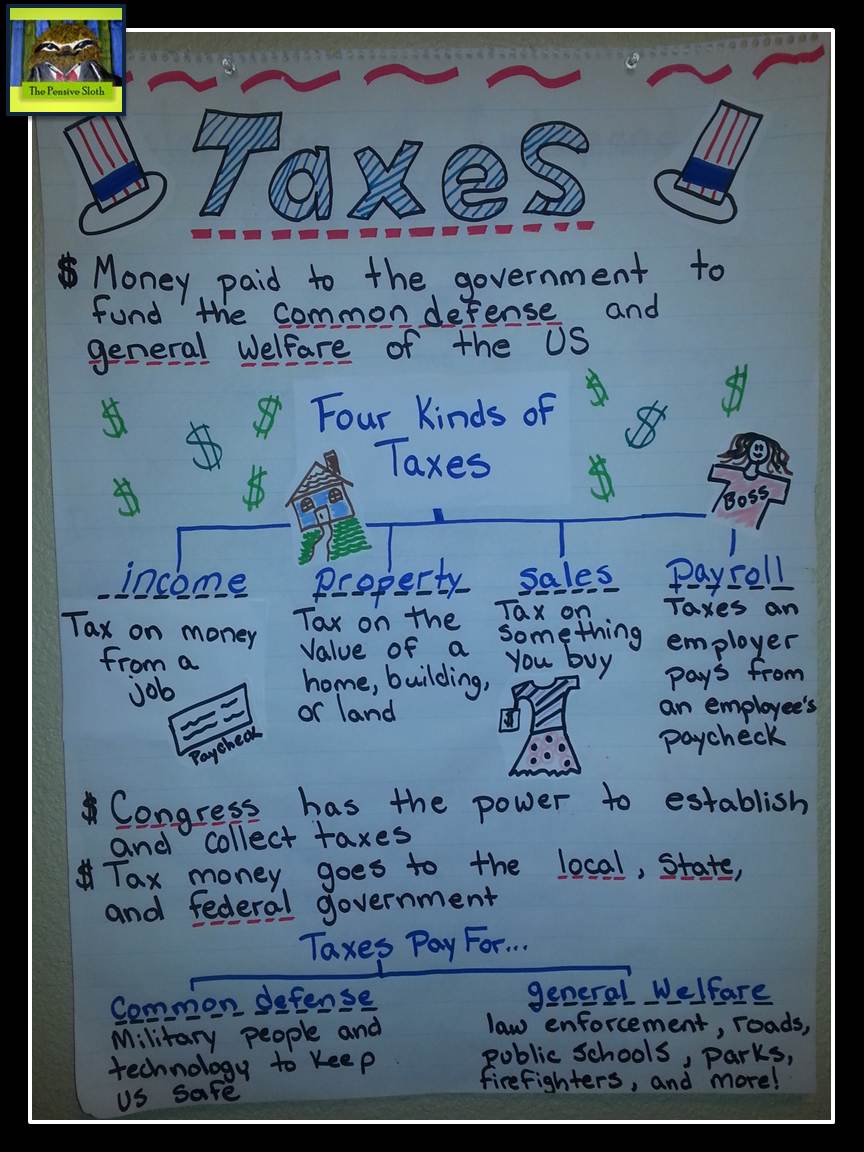 The Pensive Sloth
Taxes
$ Money paid to the government to
fund the common defense and
general welfare of the US
$ $ $ $ $ $
$ $ $
Four Kinds of
Taxes
Boss
income
Tax on money
from a
job
Paycheck
property
Tax on the
value of a
home, building,
or land
sales
Tax on
something
you buy
$
payroll
Taxes an
employer
pays from
an employee's
paycheck
$ Congress has the power to establish
and collect taxes
$ Tax money goes to the local, state,
and federal government
Taxes Pay For...
Common defense
Military people and
technology to keep
us safe
general welfare
law enforcement, roads,
public schools, parks,
firefighters, and more!